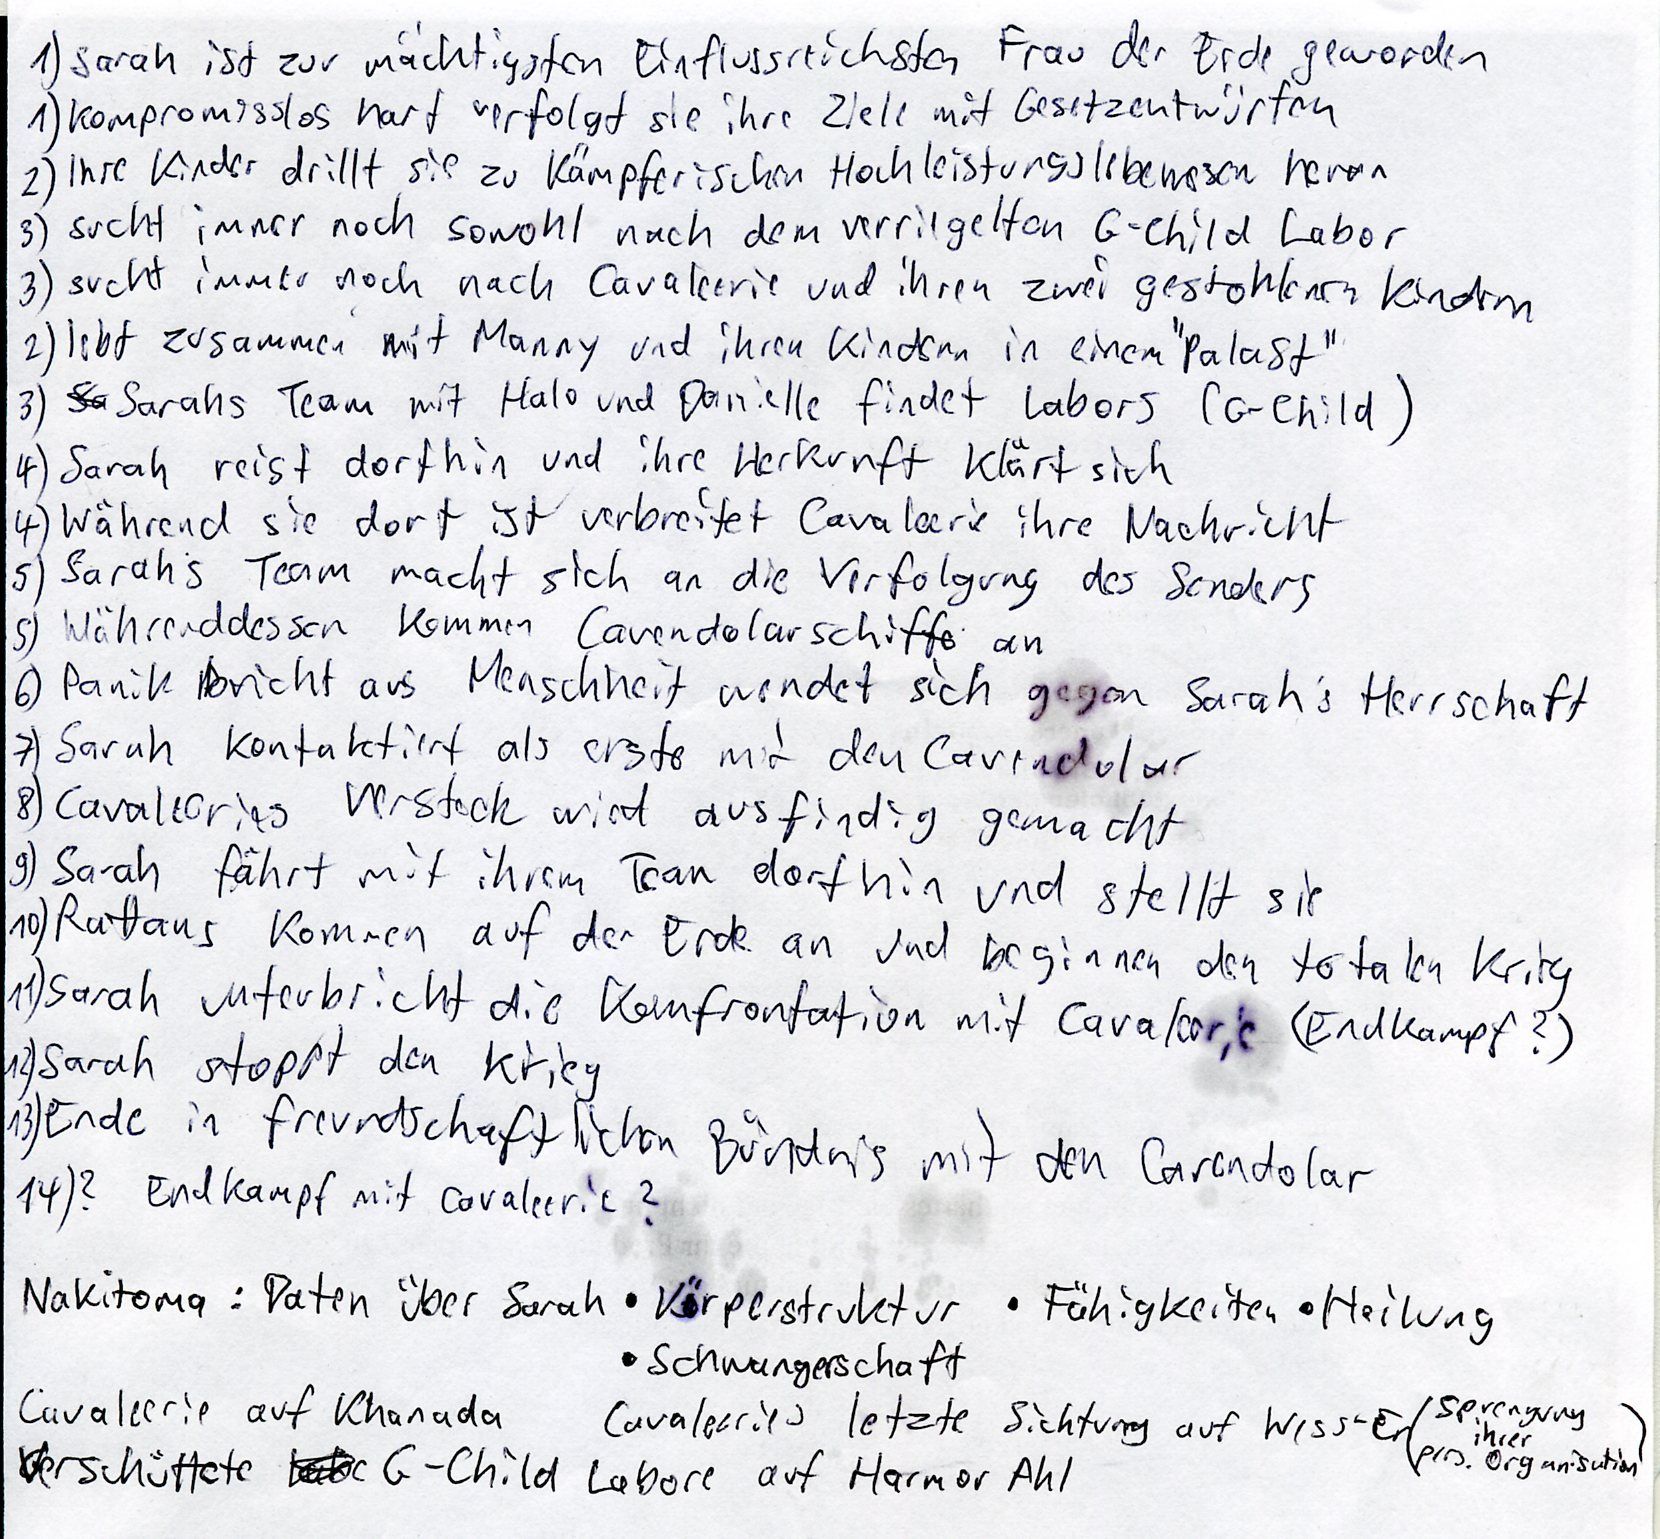 1) Sarah ist zur mächtigsten Einflussreichsten Frau der Erde geworden
1) Kompromisslos hart verfolgt sie ihre Ziele mit Gesetzentwürfen
2) Ihre Kinder drillt sie zu Kämpferischen Hochleistungslebewesen heran
3) sucht immer noch sowohl nach dem verriegelten G-Child Labor
3) sucht immer noch nach Cavaleerie und ihren zwei gestohlenen Kindern
2) lebt zusammen mit Manny und ihren Kindern in einem "Palast"
3) Sarahs Team mit Halo und Danielle findet Labors (G-Child)
4) Sarah reist dorthin und ihre Herkunft klärt sich
4) Während sie dort ist verbreitet Cavaleerie ihre Nachricht
5) Sarah's Team macht sich an die Verfolgung des Senders
5) Währenddessen kommen Cavendolarschiffe an
6) Panik bricht aus Menschheit wendet sich gegen Sarah's Herrschaft
7) Sarah kontaktiert als erste mit den Cavendolar
8) Cavaleeries Versteck wird ausfindig gemacht
9) Sarah fährt mit ihrem Team dorthin und stellt sie
10) Rattaus kommen auf der Erde an und beginnen den totalen Krieg
11) Sarah unterbricht die Konfrontation mit Cavaleerie (Endkampf?)
12) Sarah stoppt den Krieg
13) Ende in freundschaftlichen Bündnis mit den Cavendolar
14)? Endkampf mit Cavaleerie?
Nakitoma: Daten über Sarah • Körperstruktur • Fähigkeiten • Heilung
• Schwangerschaft
Cavaleerie auf Khanada Cavaleeries letzte Sichtung auf Wiss-Er (Sprengung ihrer pers. Organisation)
Verschüttete G-Child Labore auf Harmor Ahl